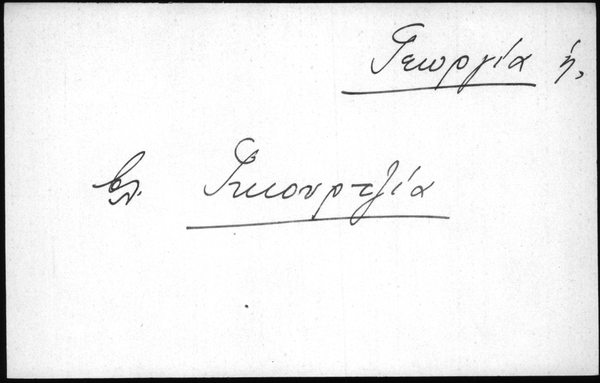 Γεωργία ἡ,
βλ. Γκιουρτζία